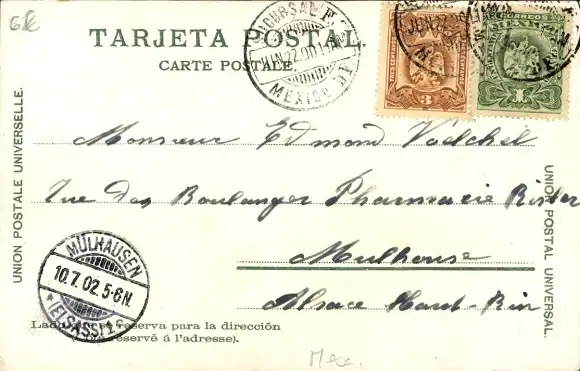 TARJETA POSTAL.
CARTE POSTALE.
SUCURSAL
MEXICO D.F.
CORREOS
3
1
UNION POSTALE UNIVERSELLE.
UNION POSTAL UNIVERSAL.
Monsieur Edmond
Rue des Boulanger Pharmacie
Mulhouse
Alsace Haut-Rin
MÜLHAUSEN
10.7.02.5-6N.
*(ELSASS)1*
reserva para la dirección
réservé á l'adresse).
Mex.